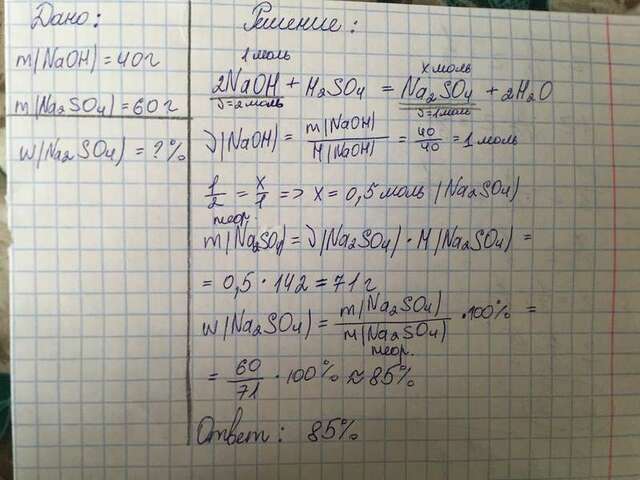 Дано:
m(NaOH) = 40г
m(Na2SO4) = 60г
w(Na2SO4) = ? %
Решение:
1 моль
x моль
2NaOH + H2SO4 = Na2SO4 + 2H2O
ν=2моль
ν=1моль
ν(NaOH) = m(NaOH) / M(NaOH) = 40/40 = 1 моль
1/2 = x/1 => x = 0,5 моль (Na2SO4)
теор.
m(Na2SO4) = ν(Na2SO4) · M(Na2SO4) =
= 0,5 · 142 = 71 г
w(Na2SO4) = m(Na2SO4) / m(Na2SO4) · 100% =
теор.
= 60/71 · 100% ≈ 85%
Ответ: 85%